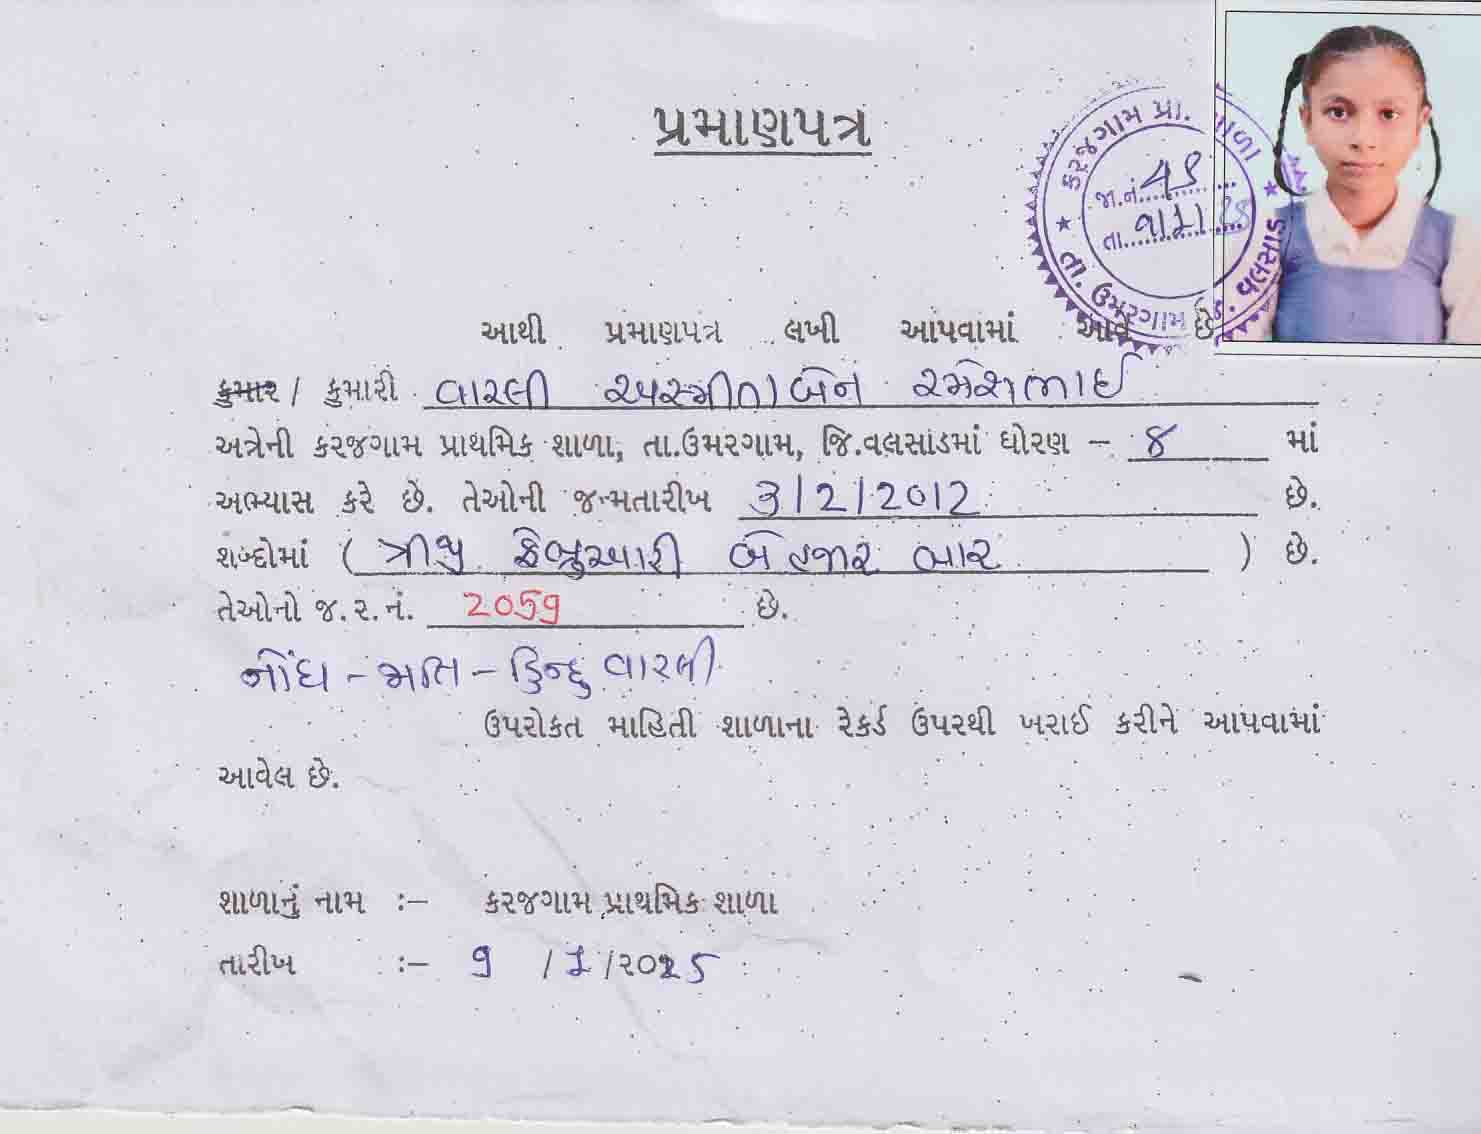 પ્રમાણપત્ર
કરજગામ પ્રા. શાળા
જા.નં. 49
તા.
તા. ઉમરગામ જિ. વલસાડ
આથી પ્રમાણપત્ર લખી આપવામાં આવે છે
કુમાર / કુમારી વારલી અસ્મીતાબેન રમેશભાઈ
અત્રેની કરજગામ પ્રાથમિક શાળા, તા.ઉમરગામ, જિ.વલસાડમાં ધોરણ – 8 માં
અભ્યાસ કરે છે. તેઓની જન્મતારીખ 3/2/2012 છે.
શબ્દોમાં ( ત્રીજી ફેબ્રુઆરી બે હજાર બાર ) છે.
તેઓનો જ.ર.નં. 2059 છે.
નોંધ - જાતિ - હિન્દુ વારલી
ઉપરોકત માહિતી શાળાના રેકર્ડ ઉપરથી ખરાઈ કરીને આપવામાં
આવેલ છે.
શાળાનું નામ :– કરજગામ પ્રાથમિક શાળા
તારીખ :– 9 /1/૨૦૨5